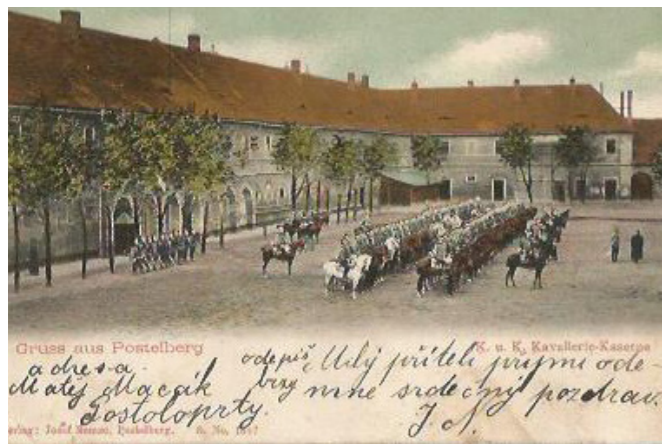 Gruss aus Postelberg
K. u. K. Kavallerie-Kaserne
adresa
Matěj Macák
Postoloprty.
odepiš
brzy
Milý příteli přijmi ode-
mne srdečný pozdrav.
J. N.
Josef Postelberg. No.